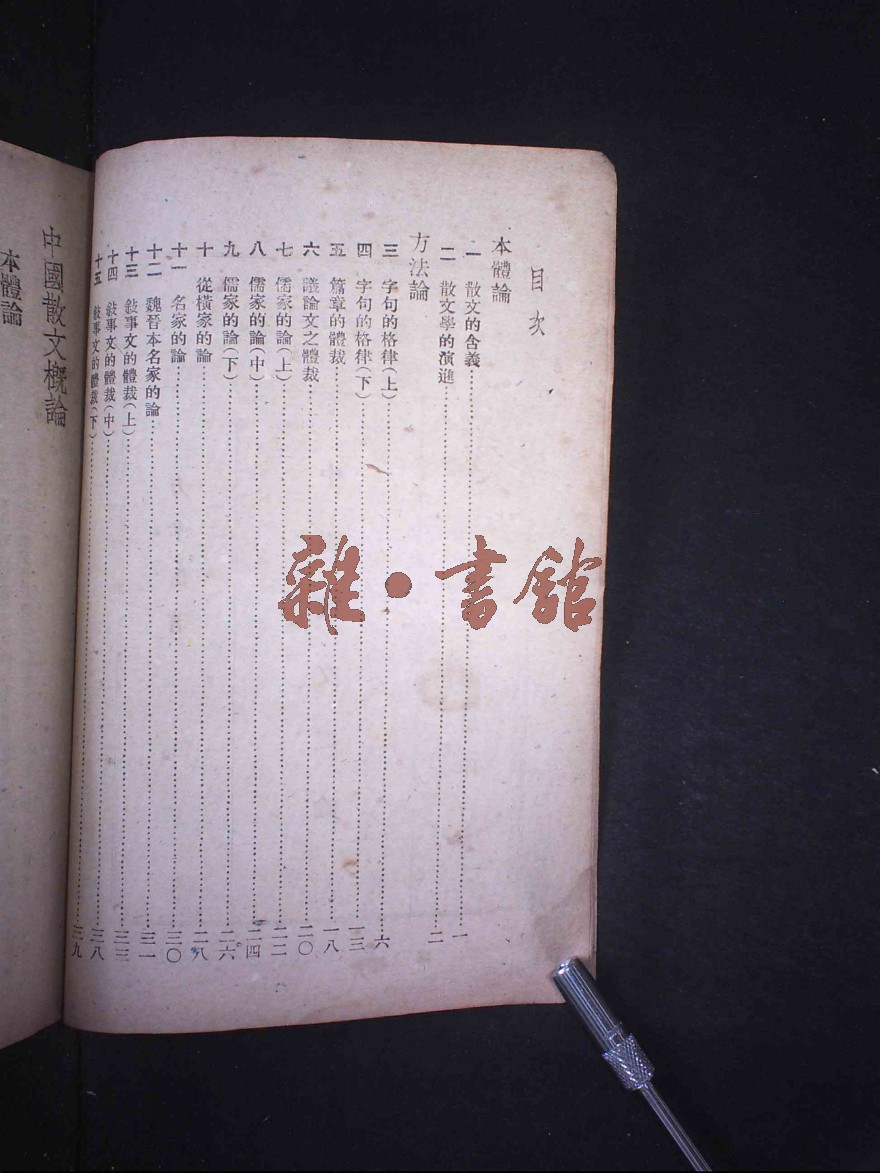 目次
本體論
一 散文的含義 一
二 散文學的演進 二
方法論
三 字句的格律(上) 六
四 字句的格律(下) 一三
五 篇章的體裁 一八
六 議論文之體裁 二〇
七 儒家的論(上) 二二
八 儒家的論(中) 二四
九 儒家的論(下) 二六
十 從橫家的論 二八
十一 名家的論 三〇
十二 魏晉本名家的論 三一
十三 敍事文的體裁(上) 三三
十四 敍事文的體裁(中) 三八
十五 敍事文的體裁(下) 三九
中國散文概論
本體論
雜·書館